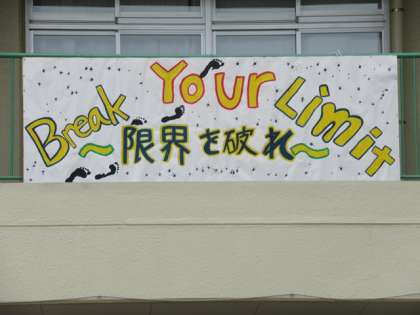 Break Your Limit
~限界を破れ~